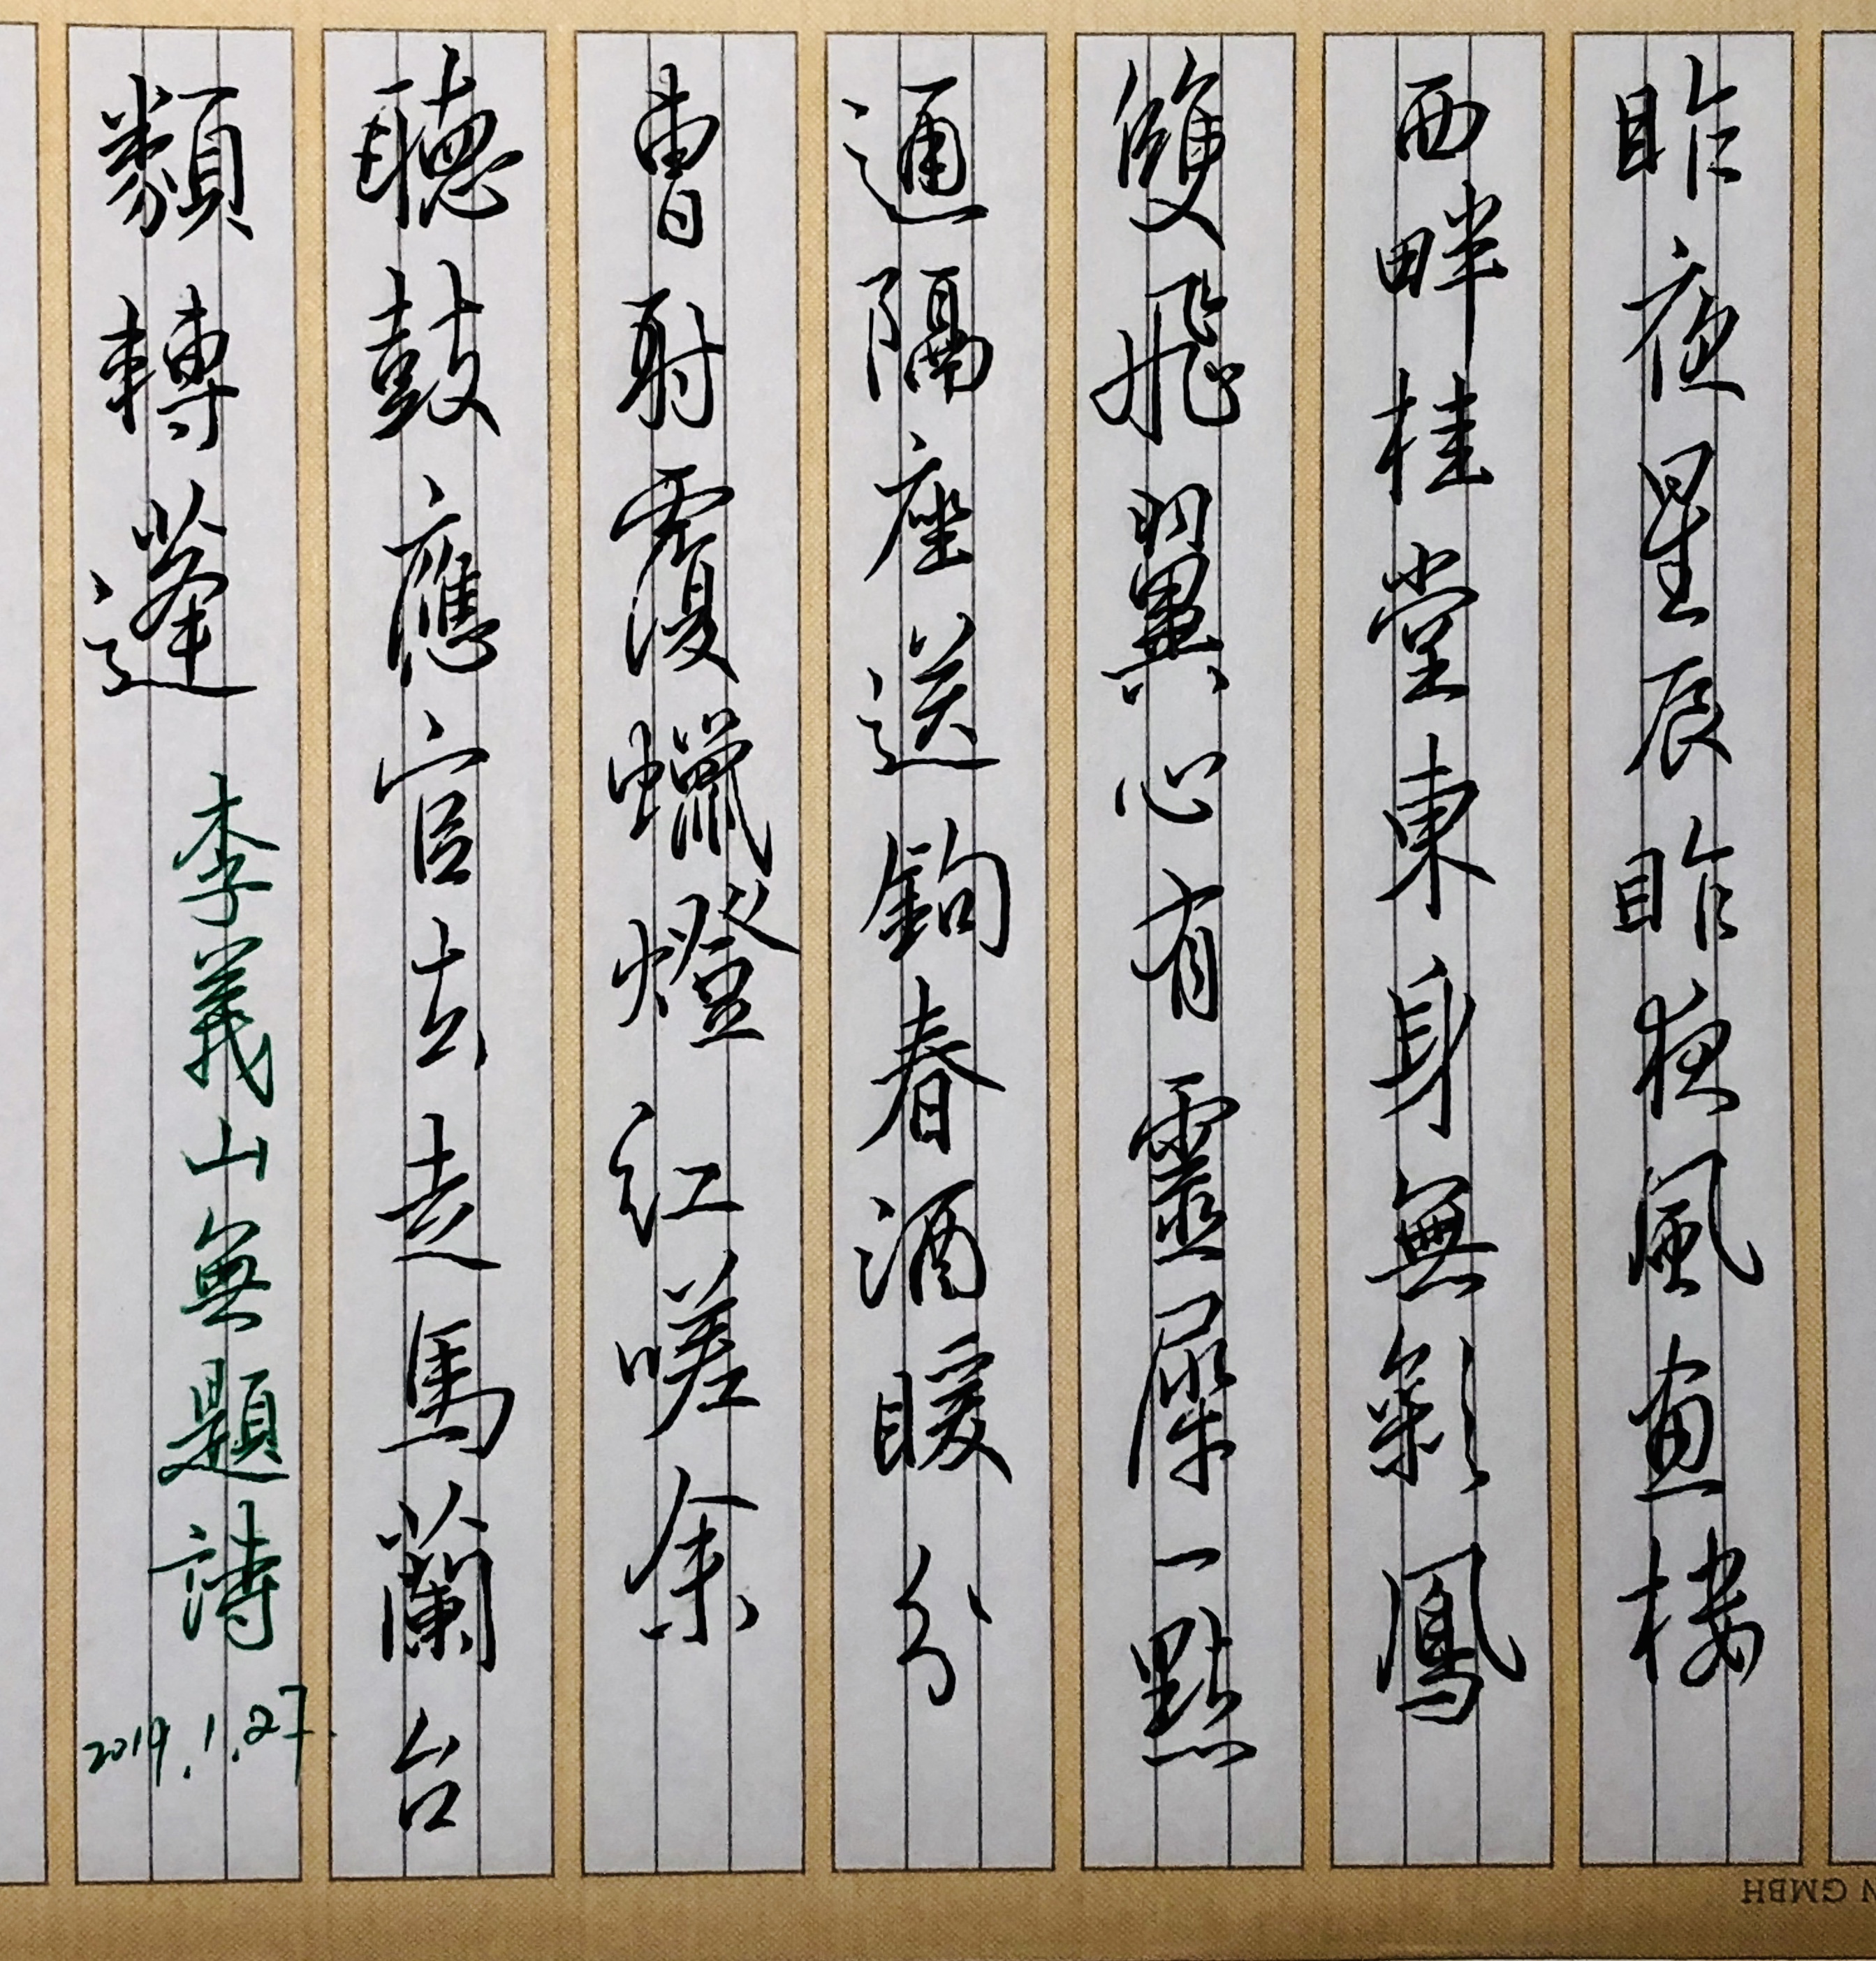 昨夜星辰昨夜風画樓
西畔桂堂東身無彩鳳
雙飛翼心有靈犀一點
通隔座送鉤春酒暖分
曹射覆蠟燈紅嗟余
聽鼓應官去走馬蘭台
類轉蓬
李義山無題詩
2019.1.27.
GMBH